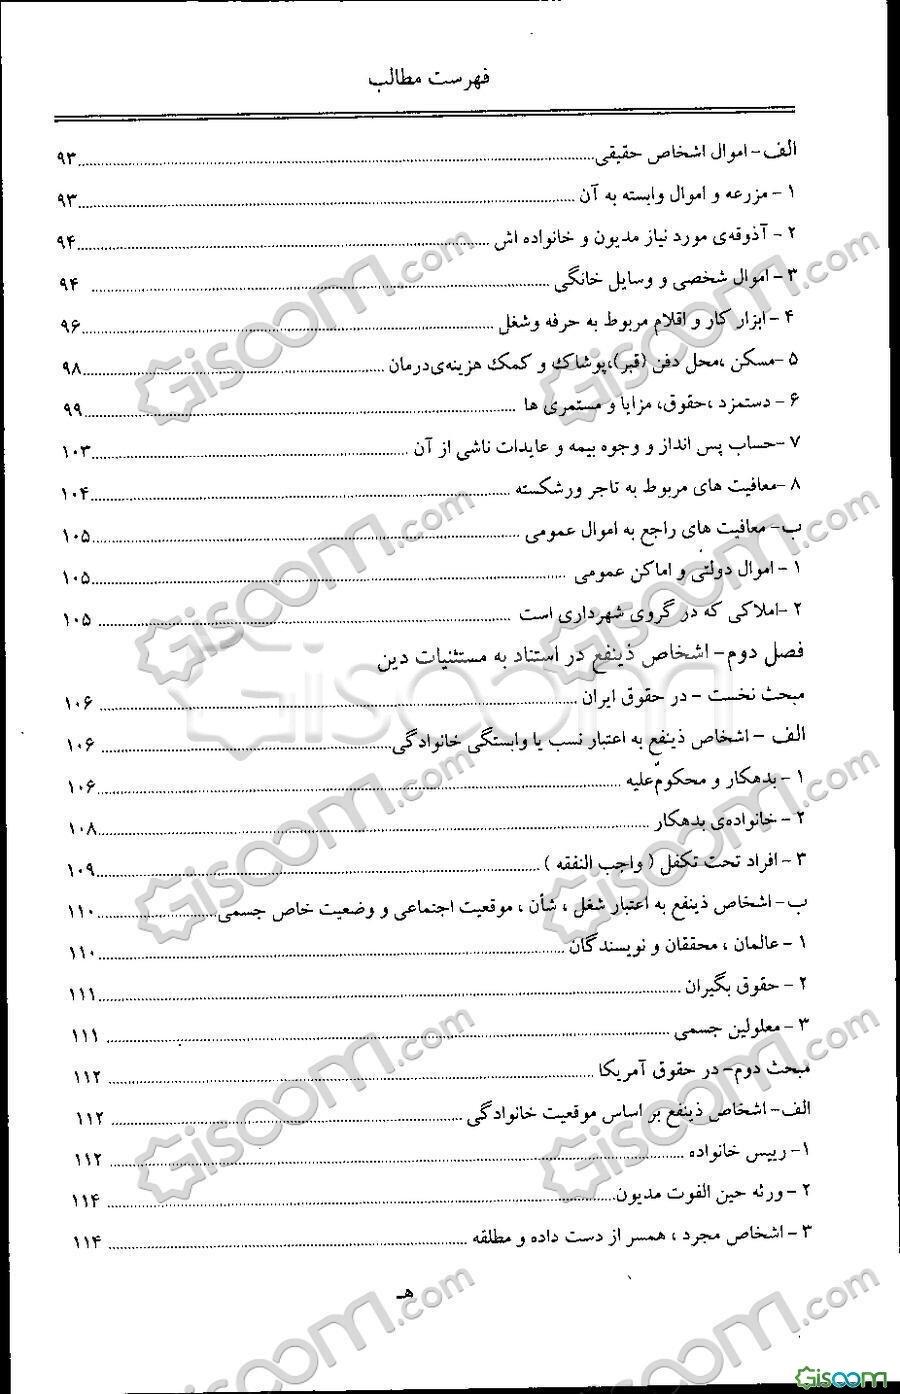 فهرست مطالب
الف- اموال اشخاص حقیقی ۹۳
۱ - مزرعه و اموال وابسته به آن ۹۳
۲ - آذوقه‌ی مورد نیاز مدیون و خانواده اش ۹۴
۳ - اموال شخصی و وسایل خانگی ۹۴
۴ - ابزار کار و اقلام مربوط به حرفه وشغل ۹۶
۵ -مسکن ،محل دفن (قبر)،پوشاک و کمک هزینه‌ی‌درمان ۹۸
۶ - دستمزد ،حقوق، مزایا و مستمری ها ۹۹
۷ -حساب پس انداز و وجوه بیمه و عایدات ناشی از آن ۱۰۳
۸ -معافیت های مربوط به تاجر ورشکسته ۱۰۴
ب- معافیت های راجع به اموال عمومی ۱۰۵
۱ - اموال دولتی و اماکن عمومی ۱۰۵
۲ -املاکی که در گروی شهرداری است ۱۰۵
فصل دوم- اشخاص ذینفع در استناد به مستثنیات دین
مبحث نخست - در حقوق ایران ۱۰۶
الف - اشخاص ذینفع به اعتبار نسب یا وابستگی خانوادگی ۱۰۶
۱ - بدهکار و محکومٌ‌علیه ۱۰۶
۲ - خانواده‌ی بدهکار ۱۰۸
۳ - افراد تحت تکفل ( واجب النفقه ) ۱۰۹
ب- اشخاص ذینفع به اعتبار شغل ، شأن ، موقعیت اجتماعی و وضعیت خاص جسمی ۱۱۰
۱ - عالمان ، محققان و نویسندگان ۱۱۰
۲ - حقوق بگیران ۱۱۱
۳ - معلولین جسمی ۱۱۱
مبحث دوم- در حقوق آمریکا ۱۱۲
الف- اشخاص ذینفع بر اساس موقعیت خانوادگی ۱۱۲
۱- رییس خانواده ۱۱۲
۲ - ورثه حین الفوت مدیون ۱۱۴
۳ - اشخاص مجرد ، همسر از دست داده و مطلقه ۱۱۴
هـ
Giscoom.com
Giscoom